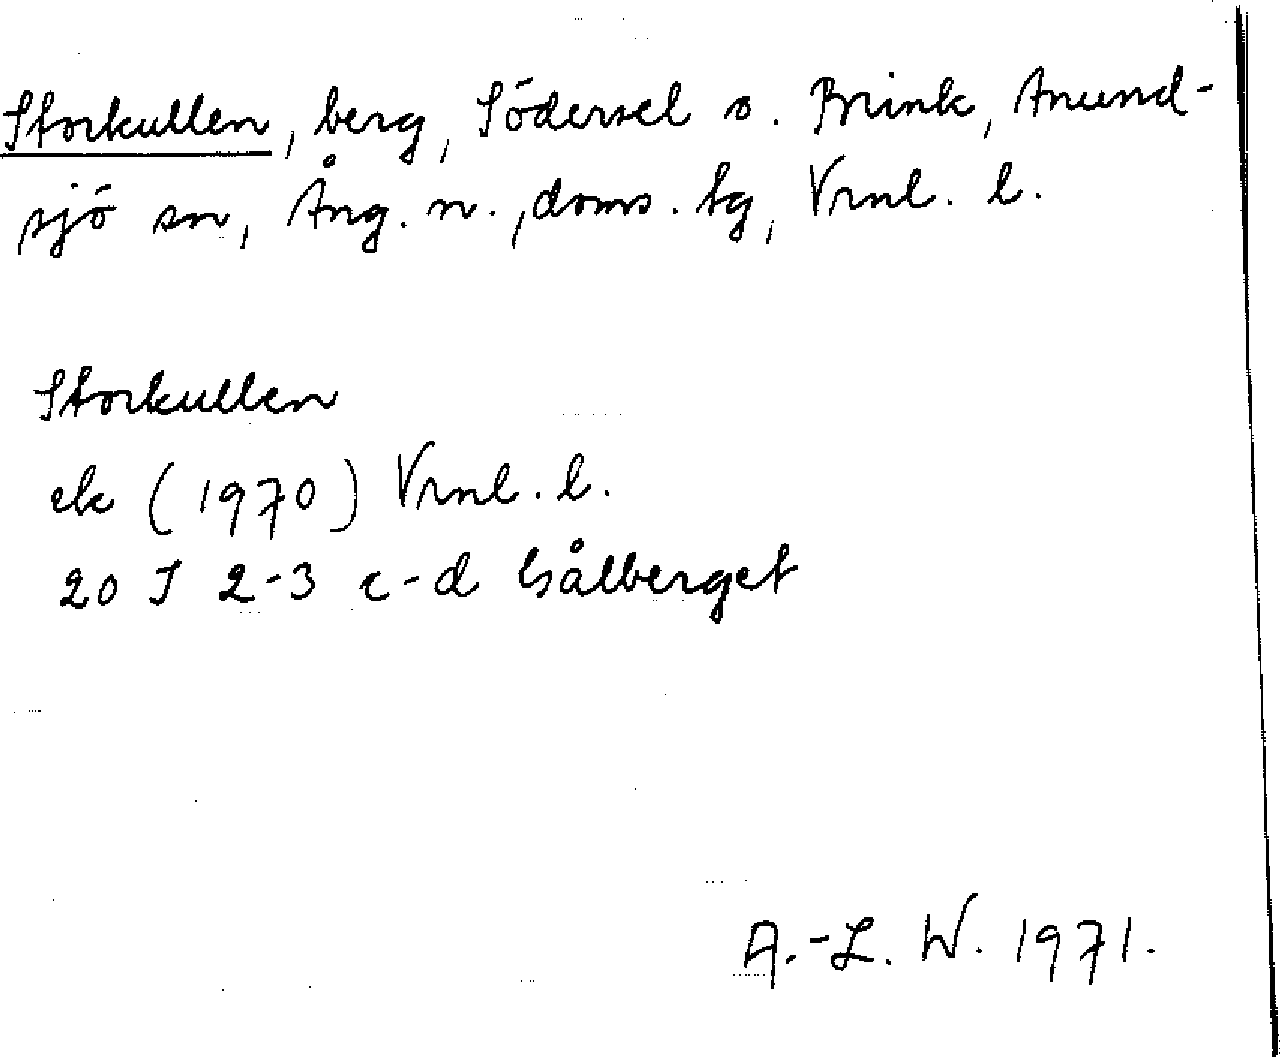 Storkullen, berg, Södersel o. Brink, Anund-
sjö sn, Ång. n., doms. tg, Vrnl. l.
Storkullen
ek (1970) Vrnl. l.
20 J 2-3 c-d Gålberget
A.-L. W. 1971.